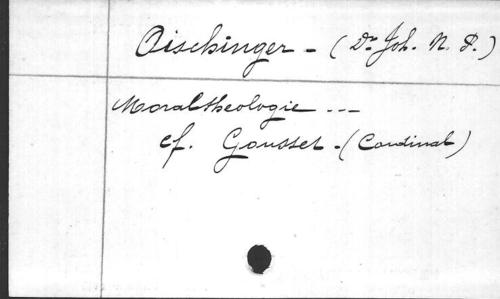 Oischinger - (Dr Joh. N. P.)
Moraltheologie ---
cf. Gousset - (Cardinal)